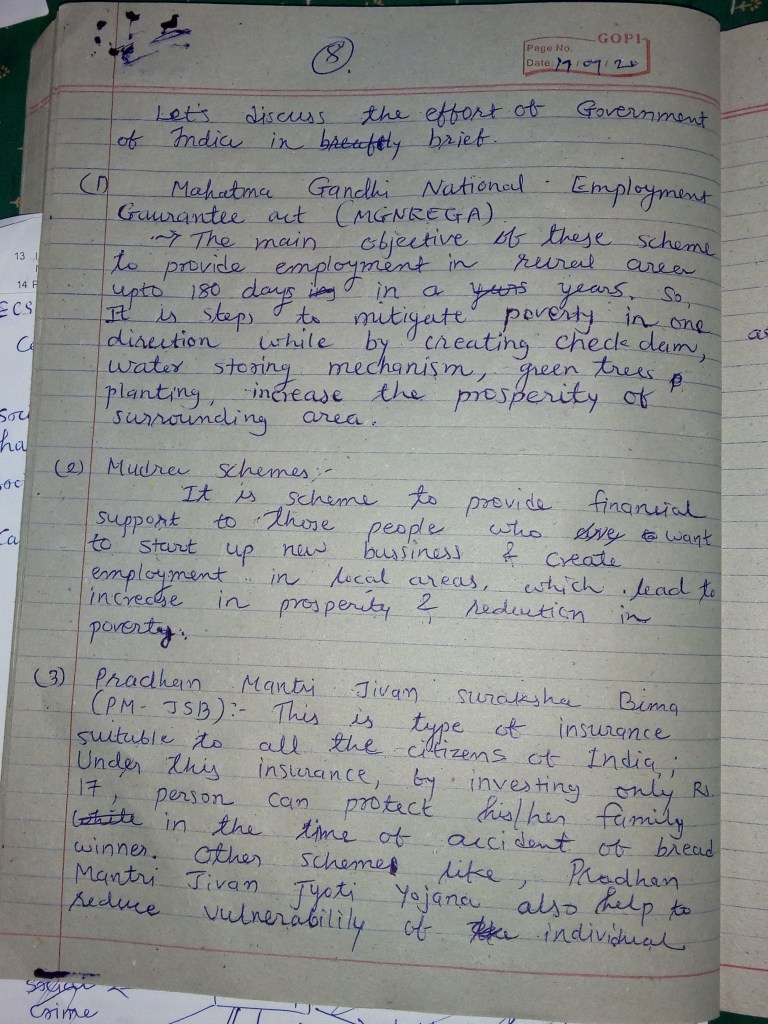 GOPI
Page No.
Date 19/09/20
8.
Let's discuss the effort of Government
of India in briefly brief.
(1) Mahatma Gandhi National Employment
Gaurantee act (MGNREGA)
→ The main objective of these scheme
to provide employment in rural area
upto 180 days in in a years years. So,
It is steps to mitigate poverty in one
direction while by creating check dam,
water storing mechanism, green trees p
planting, increase the prosperity of
surrounding area.
(2) Mudra schemes:-
It is scheme to provide financial
support to those people who want
to start up new bussiness & create
employment in local areas, which lead to
increase in prosperity & reduction in
poverty.
(3) Pradhan Mantri Jivan suraksha Bima
(PM-JSB):- This is type of insurance
suitable to all the citizens of India;
Under this insurance, by investing only Rs.
17, person can protect his/her family
while in the time of accident of bread
winner. Other schemes like, Pradhan
Mantri Jivan Jyoti Yojana also help to
reduce vulnerability of the individual
13
14
ECS
Ca
Sou
ha
soc
Ca
social
crime
as